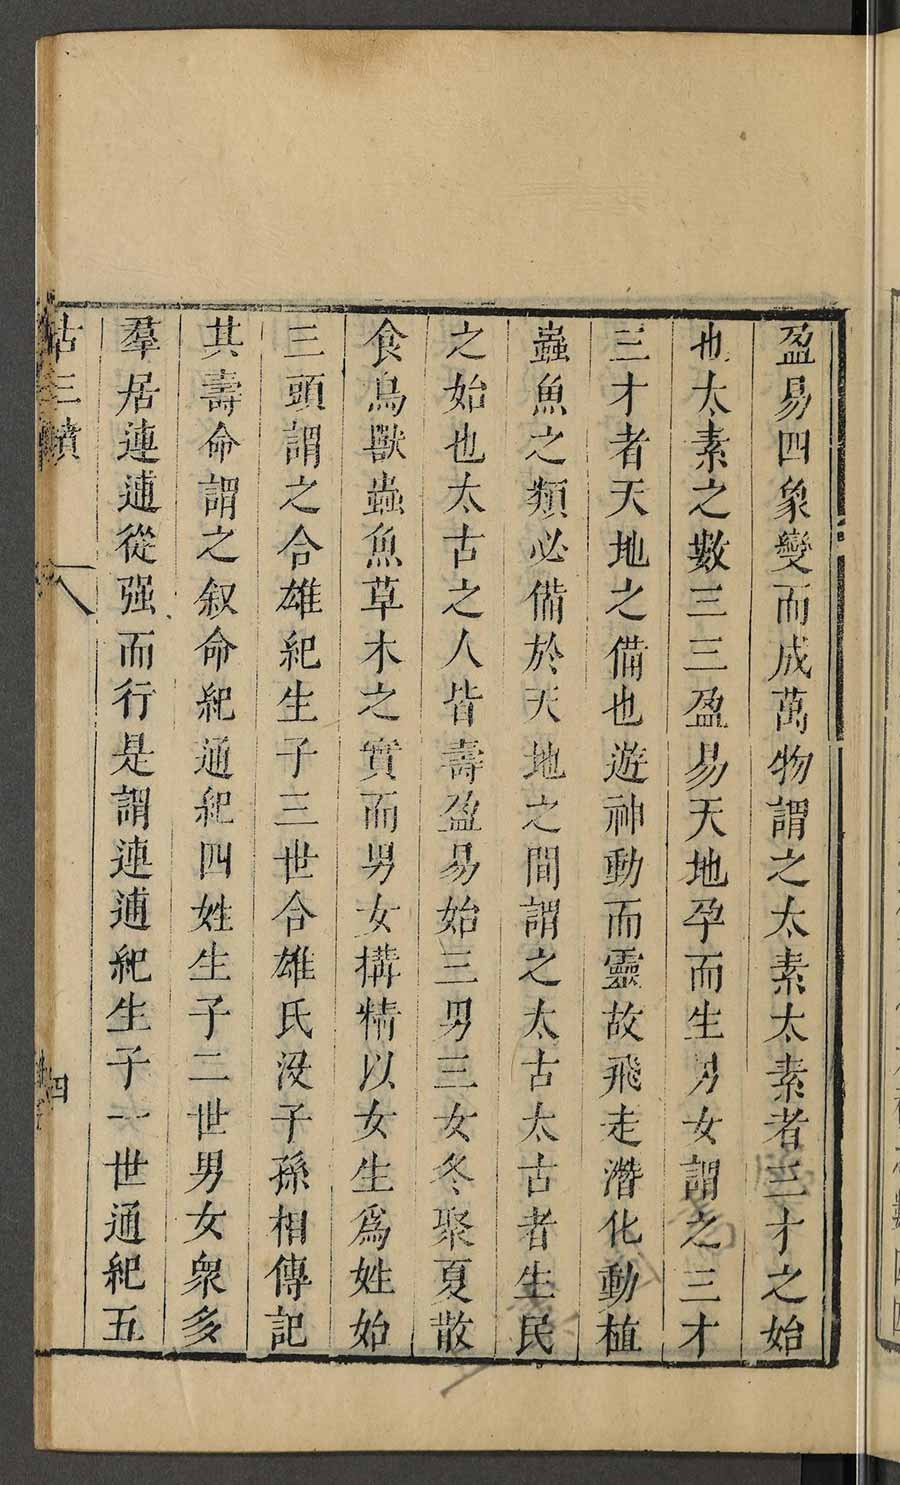 盈易四象變而成萬物謂之太素太素者三才之始
也太素之數三三盈易天地孕而生男女謂之三才
三才者天地之備也遊神動而靈故飛走潛化動植
蟲魚之類必備於天地之間謂之太古太古者生民
之始也太古之人皆壽盈易始三男三女冬聚夏散
食鳥獸蟲魚草木之實而男女搆精以女生爲姓始
三頭謂之合雄紀生子三世合雄氏没子孫相傳記
其壽命謂之叙命紀通紀四姓生子二世男女衆多
羣居連逋從强而行是謂連逋紀生子一世通紀五
古三墳
四